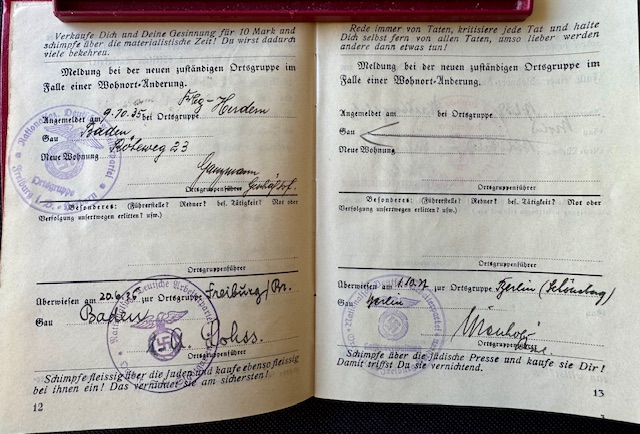 Verkaufe Dich und Deine Gesinnung für 10 Mark und
schimpfe über die materialistische Zeit! Du wirst dadurch
viele bekehren.
Meldung bei der neuen zuständigen Ortsgruppe im
Falle einer Wohnort-Änderung.
Frbg-Herdern
Angemeldet am 9.10.35 bei Ortsgruppe
Gau Baden
Neue Wohnung Röteweg 23
Ortsgruppenführer
Besonderes: (Führerstelle? Redner? bes. Tätigkeit? Not oder
Verfolgung unsertwegen erlitten? usw.)
Ortsgruppenführer
Überwiesen am 20.6.36 zur Ortsgruppe Freiburg/Br.
Gau Baden
Ortsgruppenführer
Schimpfe fleissig über die Juden und kaufe ebenso fleissig
bei ihnen ein! Das vernichtet sie am sichersten!
12
Rede immer von Taten, kritisiere jede Tat und halte
Dich selbst fern von allen Taten, umso lieber werden
andere dann etwas tun!
Meldung bei der neuen zuständigen Ortsgruppe im
Falle einer Wohnort-Änderung.
Angemeldet am bei Ortsgruppe
Gau
Neue Wohnung
Ortsgruppenführer
Besonderes: (Führerstelle? Redner? bes. Tätigkeit? Not oder
Verfolgung unsertwegen erlitten? usw.)
Ortsgruppenführer
Überwiesen am 1.10.37 zur Ortsgruppe Berlin
Gau Berlin
Ortsgruppenführer
Schimpfe über die jüdische Presse und kaufe sie Dir!
Damit triffst Du sie vernichtend.
13